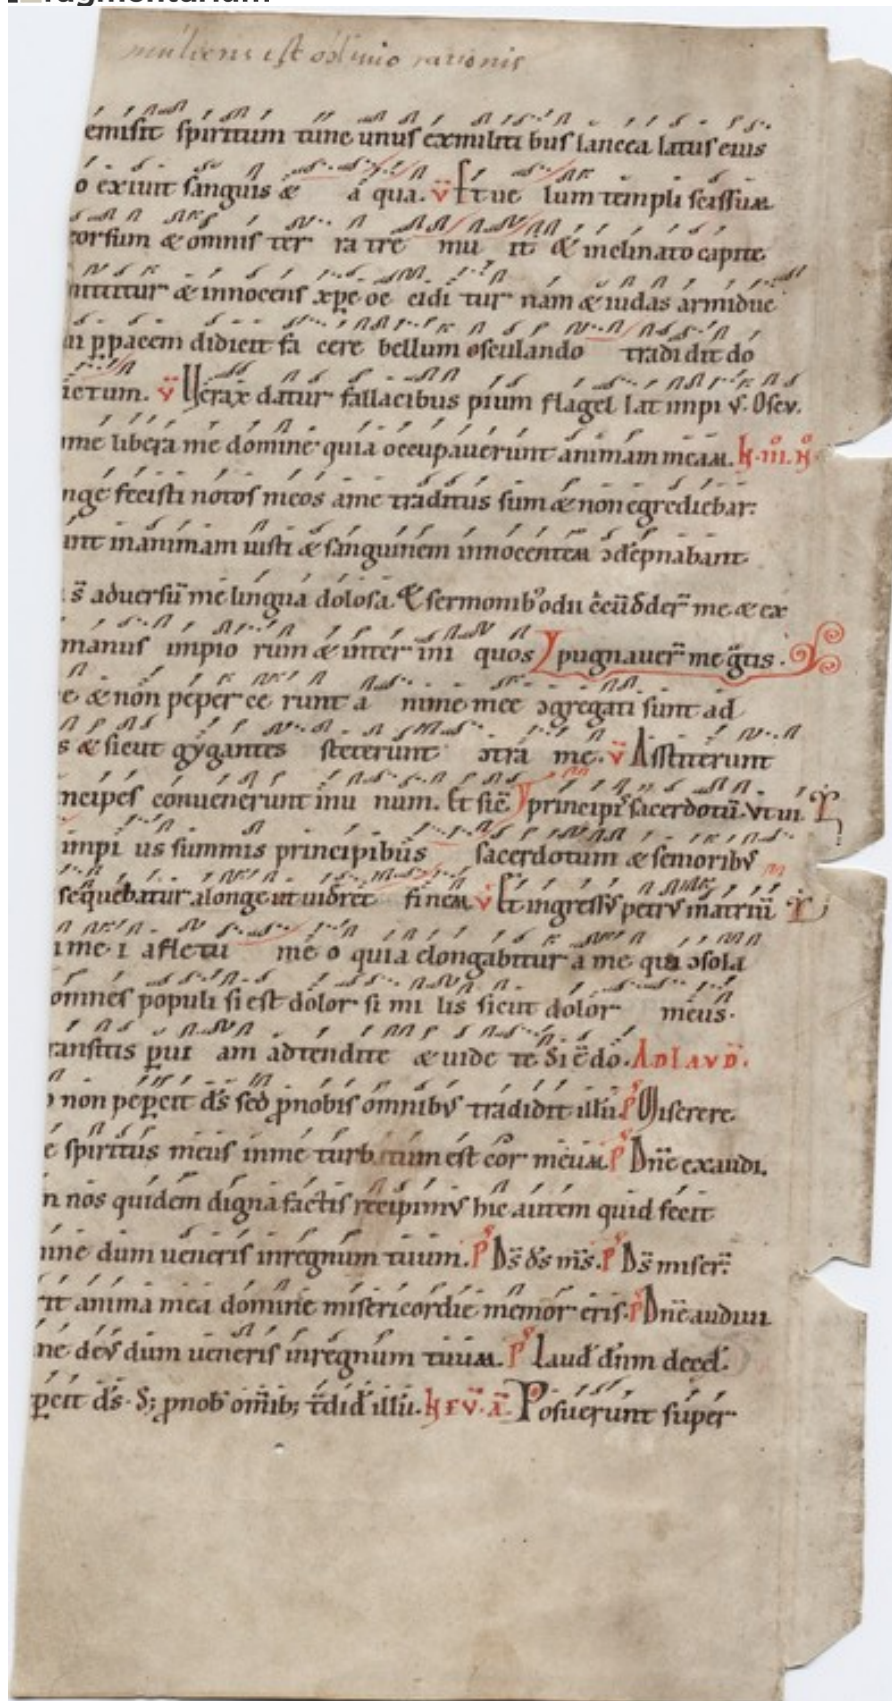 emisit spiritum tunc unus exmiliti bus lancea latus eius
o exiuit sanguis & a qua. v Et ue lum templi scissum
eorsum & omnis ter ra tre mu it & inclinato capite
mittitur & innocens xpe oc cidi tur nam & iudas armiduc
ui p pacem didicit fa cere bellum osculando tradidit do
ictum. v Uerax datur fallacibus pium flagel lat impi v. Oscu.
me libera me domine quia occupauerunt animam meam.
nge fecisti notos meos ame traditus sum & non egrediebar.
unt inanimam iusti & sanguinem innocentem ↄdēpnabant.
s̄ aduersū me lingua dolosa & sermonib' odii & ex
manus impio rum & inter ini quos pugnauer̄ me ḡtis.
e & non peper ce runt a nime mee ↄgregati sunt ad
s & sicut gygantes steterunt ↄtra me. v Asstiterunt
ncipes conuenerunt inu num. Et sic principi sacerdotū. vt ui
impi us summis principibus sacerdotum & senioribus
sequebatur alonge ut uidret finem v Et ingressus petrus in atriū
me i a fletu me o quia elongabitur a me qui ↄsola
omnes populi si est dolor si mi lis sicut dolor meus.
ransitis p ui am adtendite & uide te Si ē dō. AD LAUD.
non pepercit ds̄ sed pnobis omnibus tradidit illū. P Miserere
e spiritus meus inme turbatum est cor meum. P Dne exaudi.
n nos quidem digna factis recipimus hic autem quid fecit
mine dum ueneris inregnum tuum. P Ds̄ ds̄ ms̄. P Ds̄ miser.
rit anima mea domine misericordie memor eris. P Dne audiui
ne deus dum ueneris inregnum tuum. P Laud dnm decel.
percit ds̄. S; pnob' omib; tdid illū. Posuerunt super